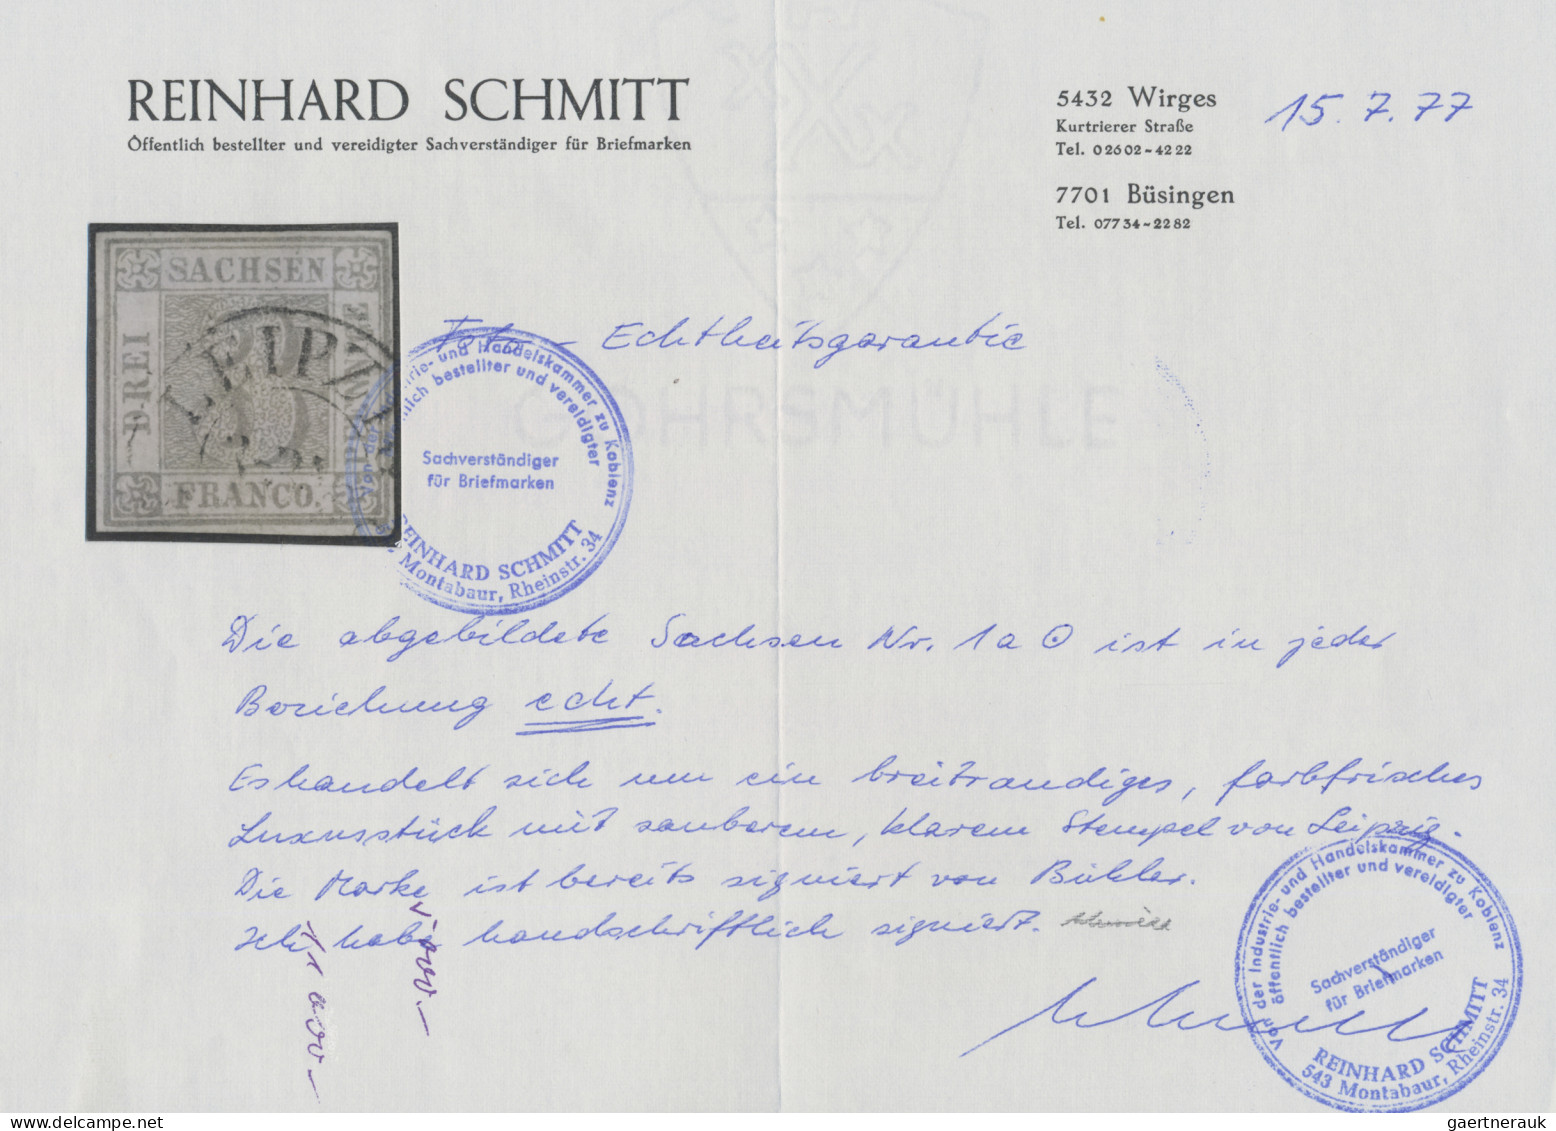 REINHARD SCHMITT
Öffentlich bestellter und vereidigter Sachverständiger für Briefmarken
5432 Wirges
Kurtrierer Straße
Tel. 02602-4222
7701 Büsingen
Tel. 07734-2282
15.7.77
SACHSEN
DREI
3
LEIPZIG
FRANCO.
Foto - Echtheitsgarantie
GOHRSMÜHLE
Von der Industrie- und Handelskammer zu Koblenz
öffentlich bestellter und vereidigter
Sachverständiger
für Briefmarken
REINHARD SCHMITT
Montabaur, Rheinstr. 34
Die abgebildete Sachsen Nr. 1a ⊙ ist in jeder
Beziehung echt.
Es handelt sich um ein breitrandiges, farbfrisches
Luxusstück mit sauberem, klarem Stempel von Leipzig.
Die Marke ist bereits signiert von Bühler.
Ich habe handschriftlich signiert.
Von der Industrie- und Handelskammer zu Koblenz
öffentlich bestellter und vereidigter
Sachverständiger
für Briefmarken
REINHARD SCHMITT
543 Montabaur, Rheinstr. 34
gaertnerauk